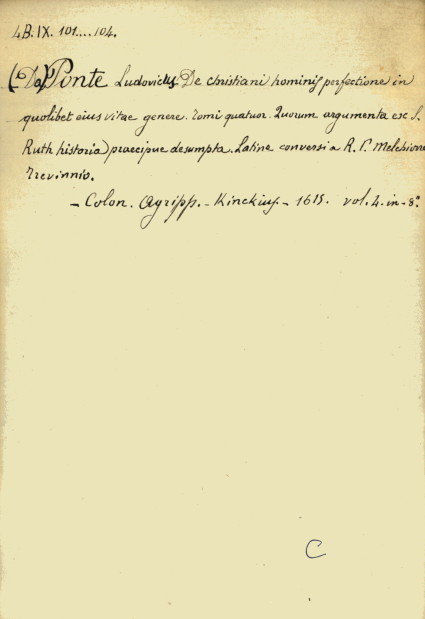 4B.IX. 101....104.
(Da) Ponte Ludovicus De christiani hominis perfectione in
quolibet eius vitae genere. Tomi quatuor. Quorum argumenta exc S.
Ruth historia) praecipue desumpta. Latine conversi a R. P. Melchiorre
Trevinnio.
- Colon. Agripp. - Kinckius. - 1615. vol. 4. in-8.°
C